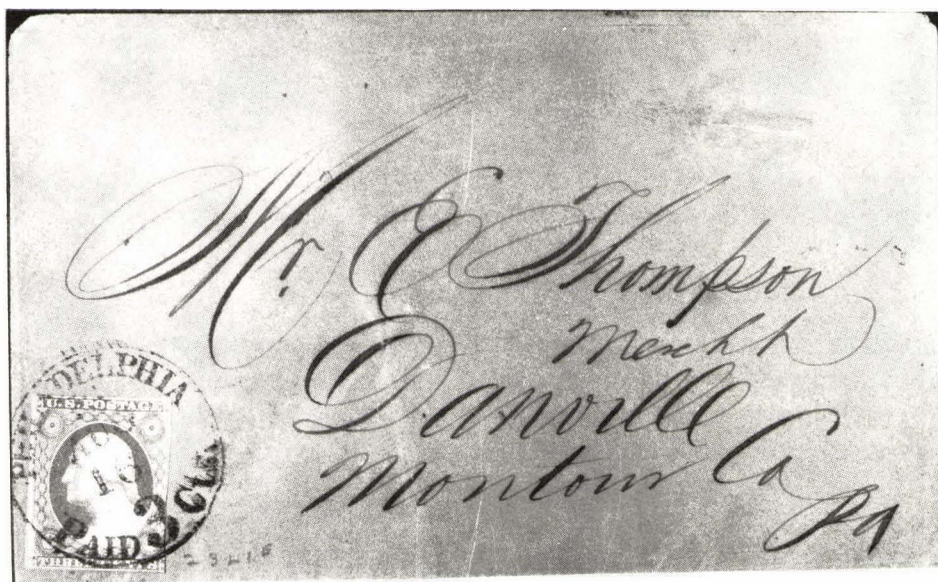 Mr. E Thompson
Mercht
Danville
Montour Co
Pa
PHILADELPHIA
U.S. POSTAGE
PAID 3 Cts.
23L1E